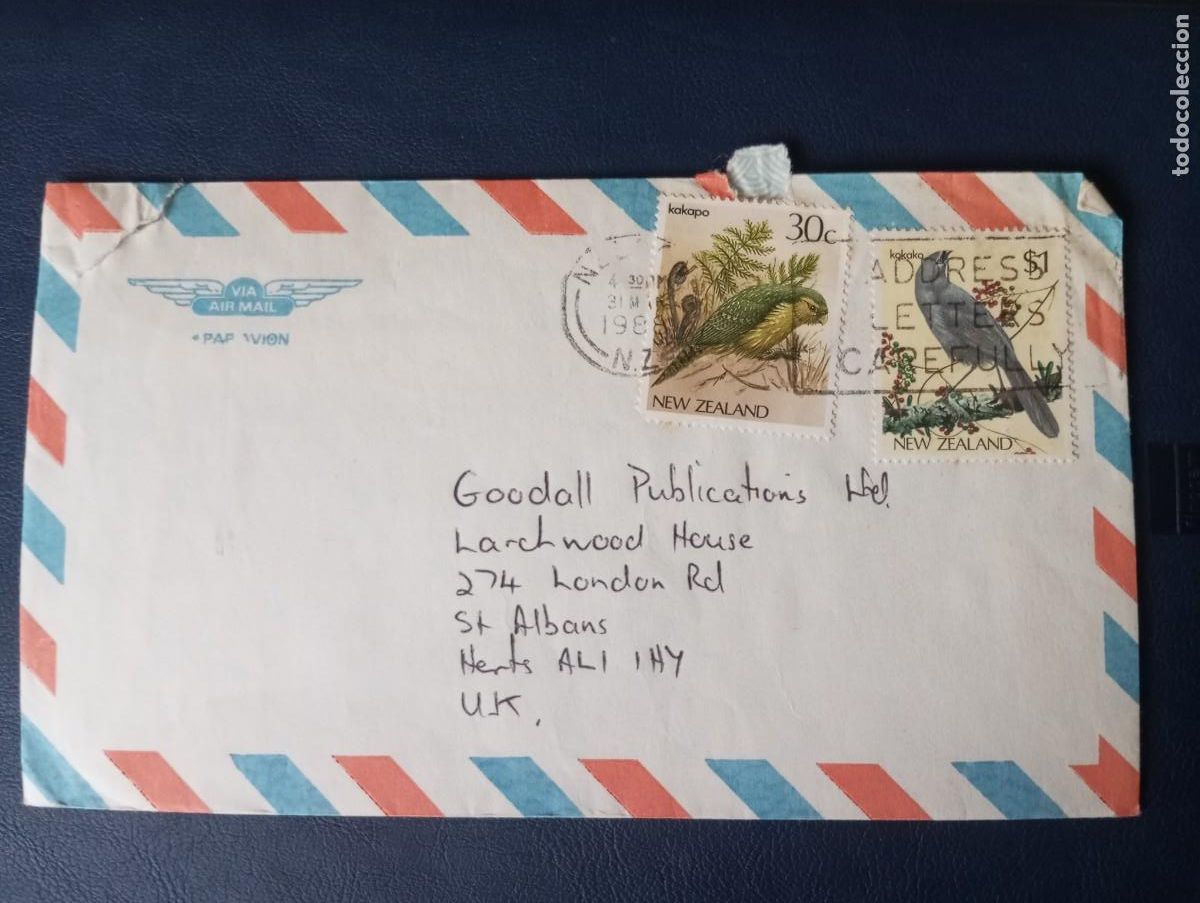 todocoleccion
VIA
AIR MAIL
kakapo
30c
NEW ZEALAND
kokako
$1
NEW ZEALAND
4 30
31 M
198
N.Z
ADDRESS
LETTERS
CAREFULLY
Goodall Publications Ltd.
Larchwood House
274 London Rd
St Albans
Herts AL1 1HY
U.K.